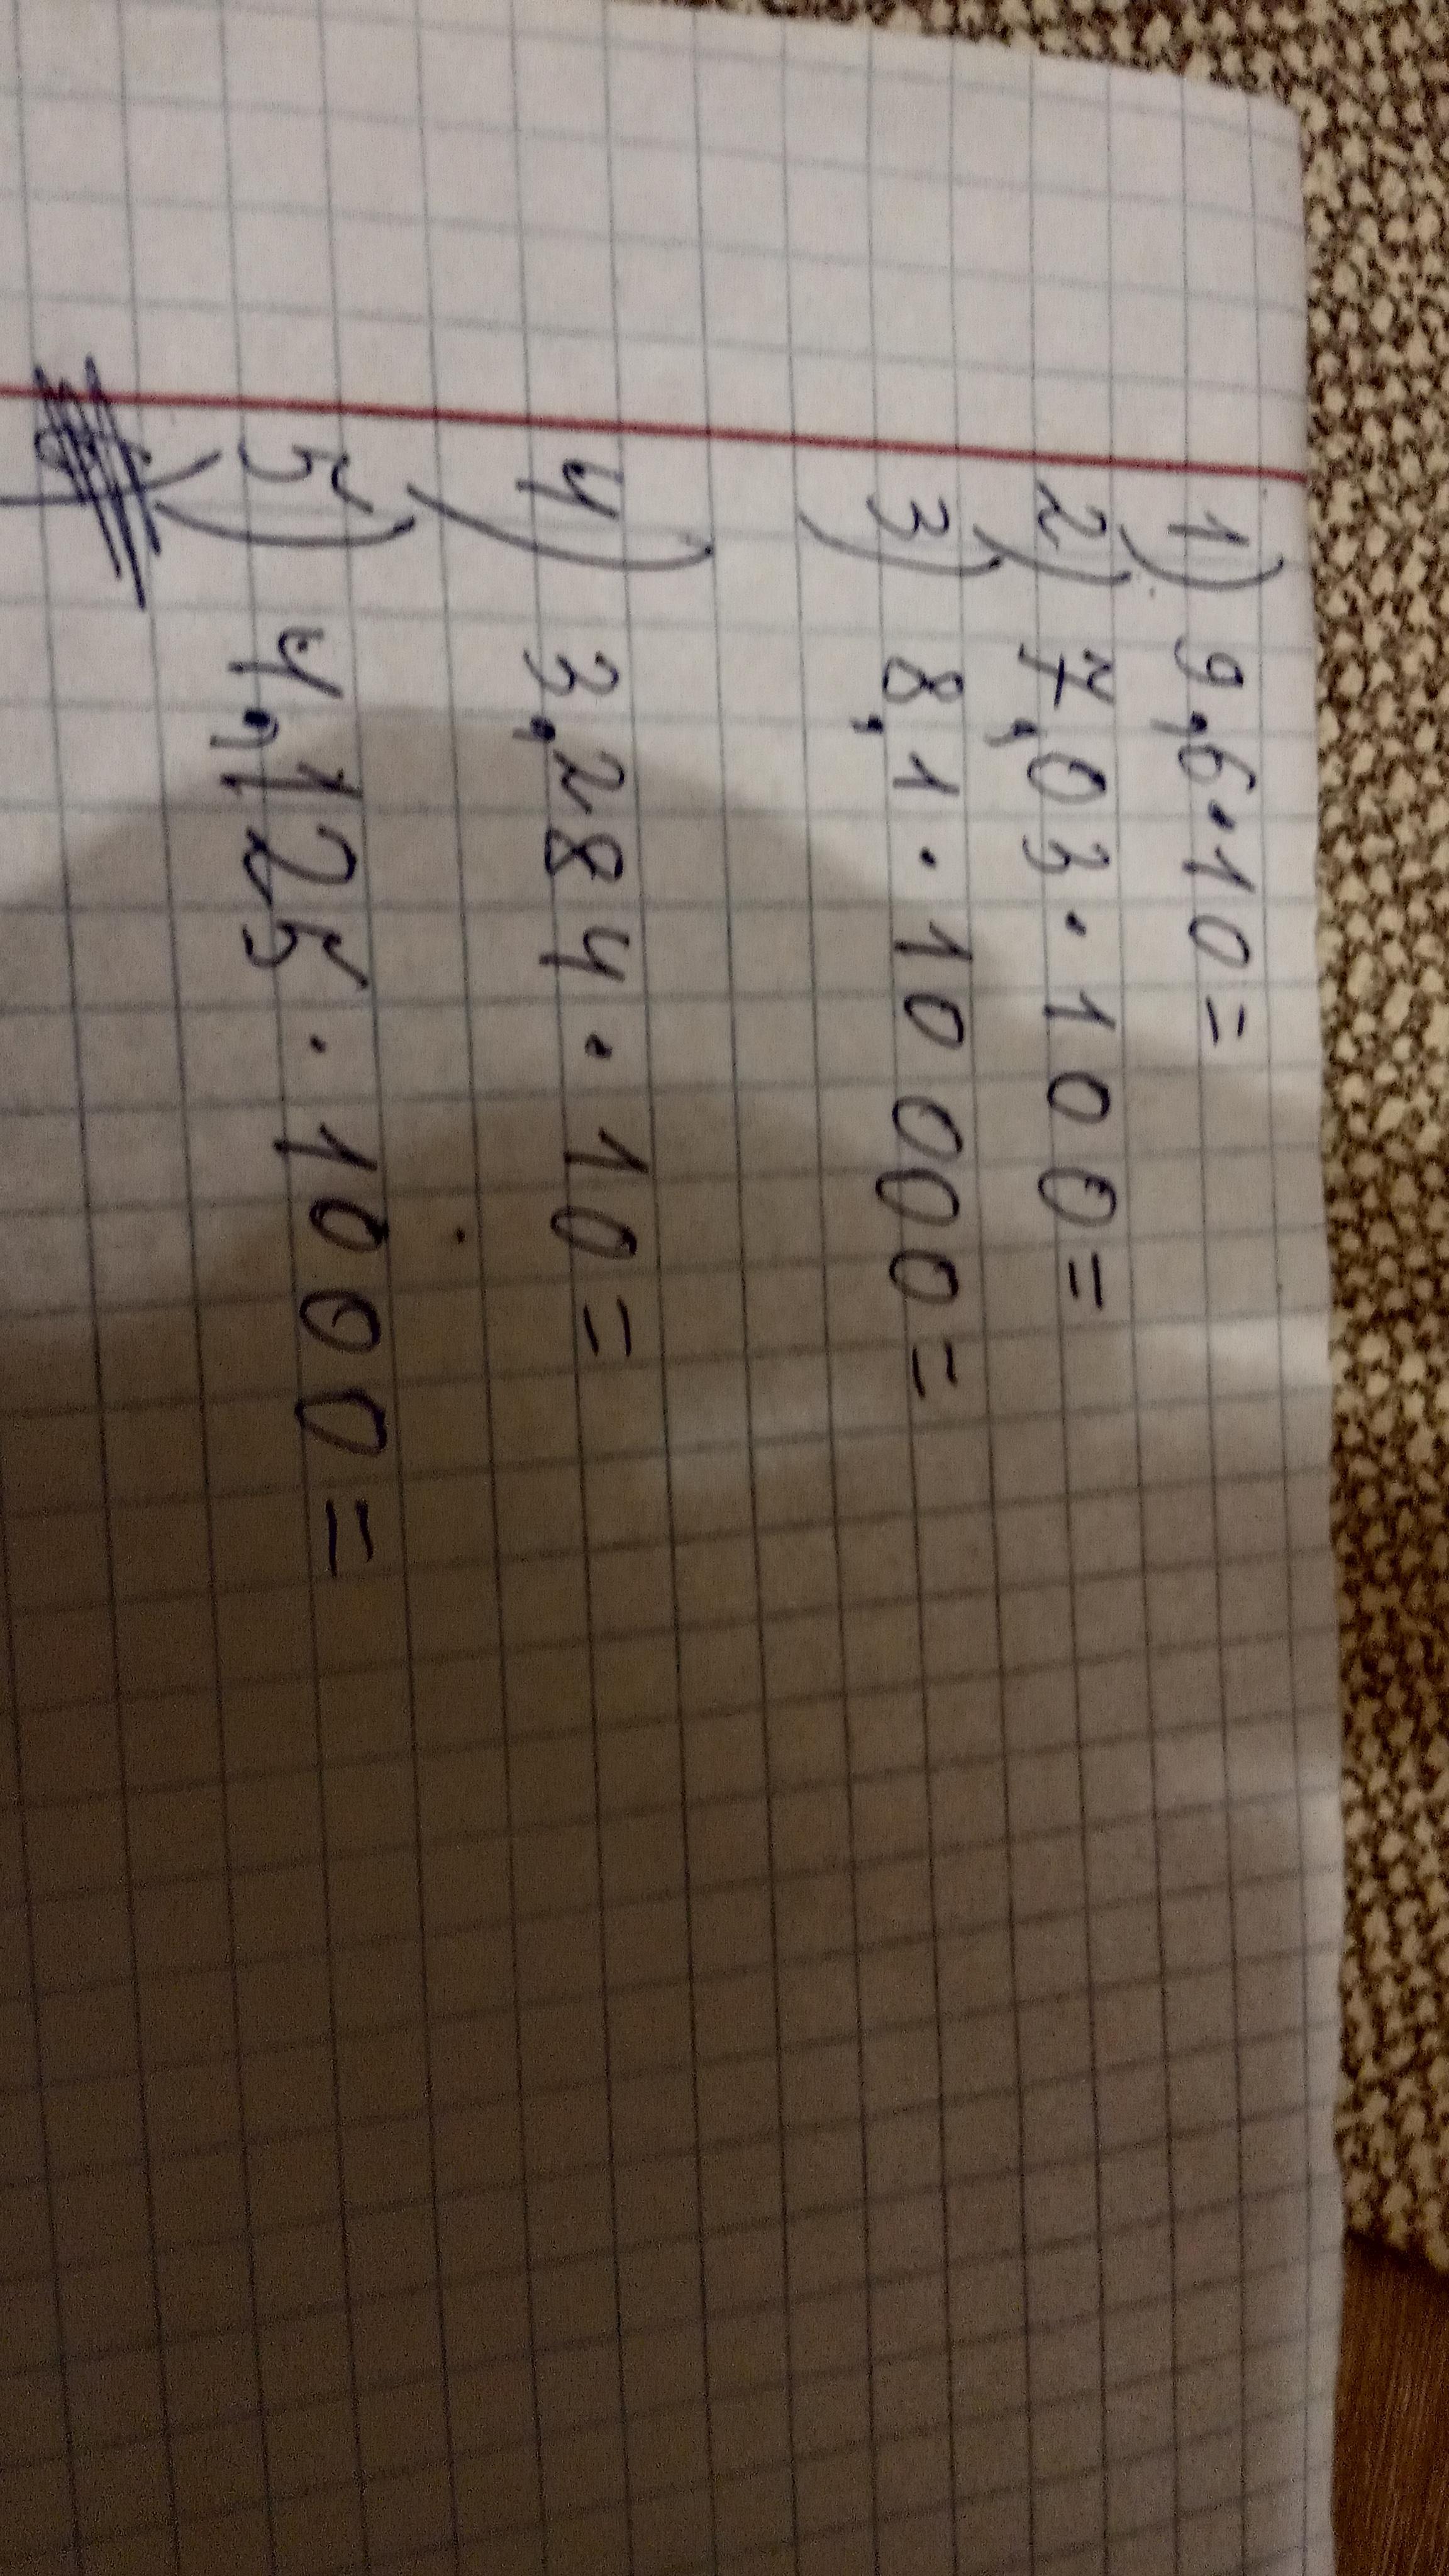 1) 9,6·10=
2) 7,03·100=
3) 8,1·10000=
4) 3,284·10=
5) 4,125·1000=